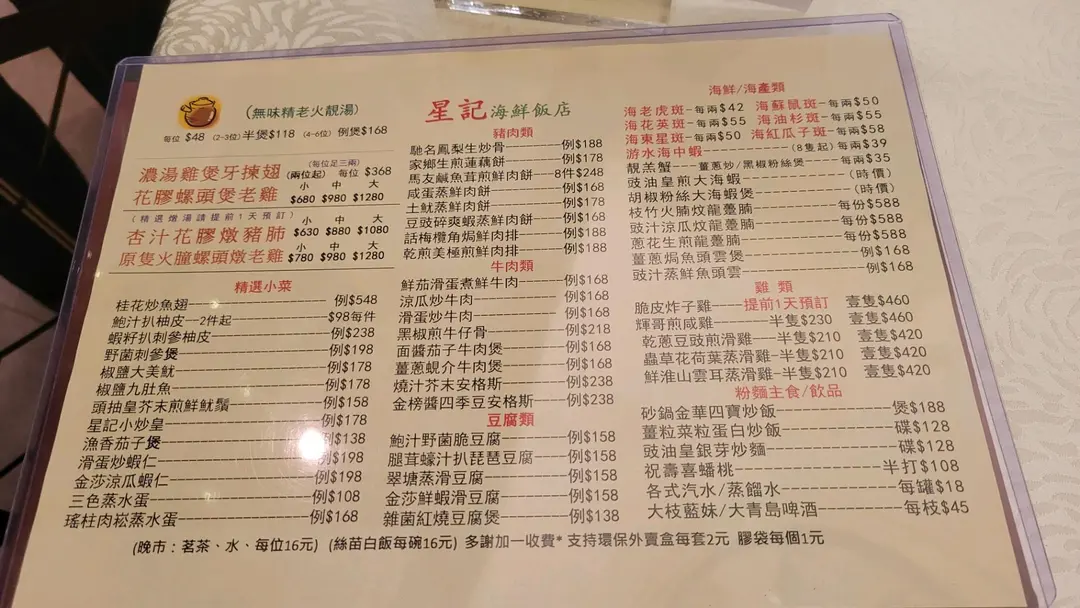 (無味精老火靚湯)
每位 $48 (2-3位)半煲$118 (4-6位) 例煲$168
(每位足三兩)
濃湯雞煲牙揀翅 (兩位起) 每位 $368
小 中 大
花膠螺頭煲老雞 $680 $980 $1280
(精選燉湯請提前1天預訂) 小 中 大
杏汁花膠燉豬肺 $630 $880 $1080
小 中 大
原隻火瞳螺頭燉老雞 $780 $980 $1280
精選小菜
桂花炒魚翅 例$548
鮑汁扒柚皮--2件起 $98每件
蝦籽扒刺參柚皮 例$238
野菌刺參煲 例$198
椒鹽大美魷 例$178
椒鹽九肚魚 例$178
頭抽皇芥末煎鮮魷鬚 例$158
星記小炒皇 例$178
漁香茄子煲 例$138
滑蛋炒蝦仁 例$198
金莎涼瓜蝦仁 例$198
三色蒸水蛋 例$108
瑤柱肉崧蒸水蛋 例$168
星記海鮮飯店
豬肉類
馳名鳳梨生炒骨 例$188
家鄉生煎蓮藕餅 例$178
馬友鹹魚茸煎鮮肉餅 8件$248
咸蛋蒸鮮肉餅 例$168
土魷蒸鮮肉餅 例$178
豆豉碎爽蝦蒸鮮肉餅 例$168
話梅欖角焗鮮肉排 例$188
乾煎美極煎鮮肉排 例$188
牛肉類
鮮茄滑蛋煮鮮牛肉 例$168
涼瓜炒牛肉 例$168
滑蛋炒牛肉 例$168
黑椒煎牛仔骨 例$218
面醬茄子牛肉煲 例$168
薑蔥蜆介牛肉煲 例$168
燒汁芥末安格斯 例$238
金榜醬四季豆安格斯 例$238
豆腐類
鮑汁野菌脆豆腐 例$158
腿茸蠔汁扒琵琶豆腐 例$158
翠塘蒸滑豆腐 例$158
金莎鮮蝦滑豆腐 例$158
雜菌紅燒豆腐煲 例$138
海鮮/海產類
海老虎斑-每兩$42 海蘇鼠斑-每兩$50
海花英斑-每兩$55 海油杉斑-每兩$55
海東星斑-每兩$50 海紅瓜子斑-每兩$58
游水海中蝦 (8隻起)每兩$39
靚羔蟹 薑蔥炒/黑椒粉絲煲 每兩$35
豉油皇煎大海蝦 (時價)
胡椒粉絲大海蝦煲 (時價)
枝竹火腩炆龍躉腩 每份$588
豉汁涼瓜炆龍躉腩 每份$588
蔥花生煎龍躉腩 每份$588
薑蔥焗魚頭雲煲 例$168
豉汁蒸鮮魚頭雲 例$168
雞 類
脆皮炸子雞 提前1天預訂 壹隻$460
輝哥煎咸雞 半隻$230 壹隻$460
乾蔥豆豉煎滑雞-半隻$210 壹隻$420
蟲草花荷葉蒸滑雞-半隻$210 壹隻$420
鮮淮山雲耳蒸滑雞-半隻$210 壹隻$420
粉麵主食/飲品
砂鍋金華四寶炒飯 煲$188
薑粒菜粒蛋白炒飯 碟$128
豉油皇銀芽炒麵 碟$128
祝壽喜蟠桃 半打$108
各式汽水/蒸餾水 每罐$18
大枝藍妹/大青島啤酒 每枝$45
(晚市：茗茶、水、每位16元) (絲苗白飯每碗16元) 多謝加一收費* 支持環保外賣盒每套2元 膠袋每個1元